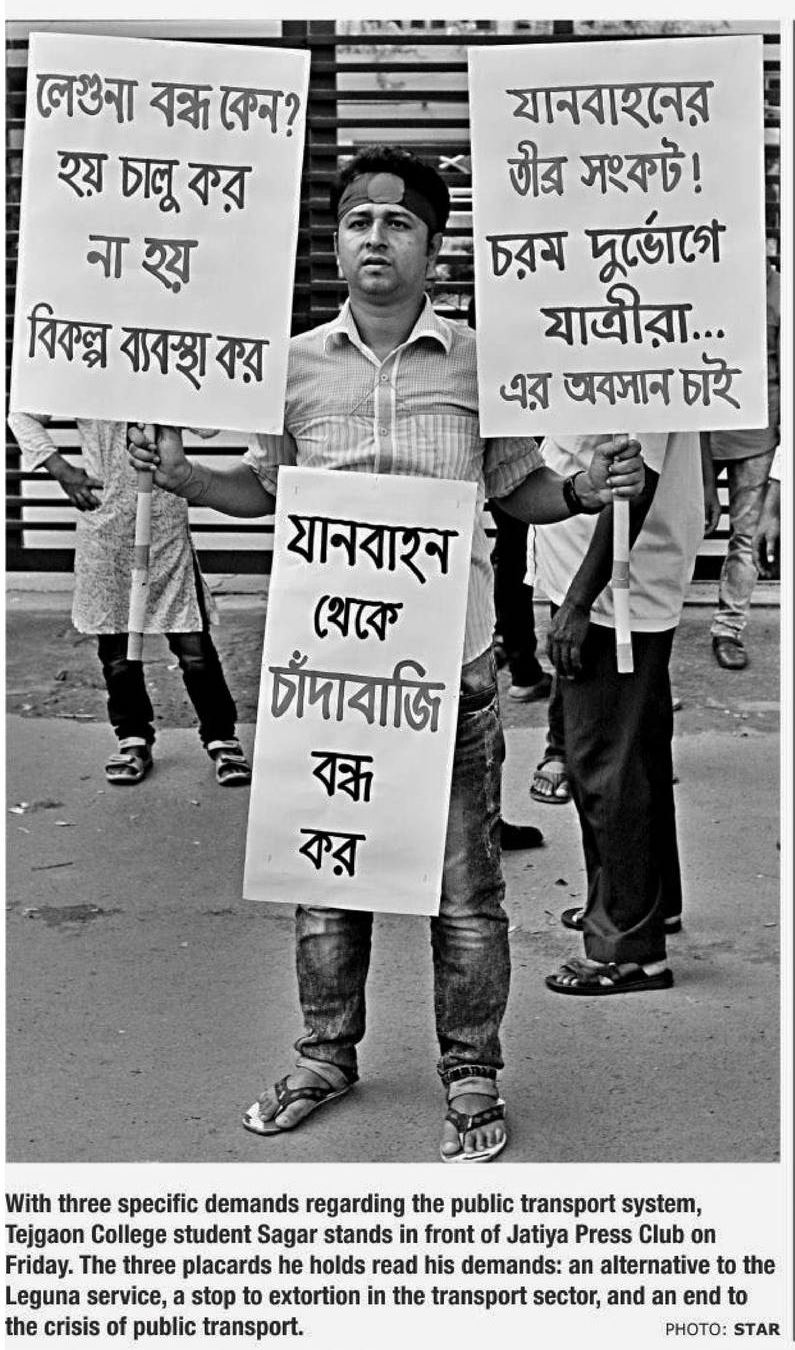 লেগুনা বন্ধ কেন?
হয় চালু কর
না হয়
বিকল্প ব্যবস্থা কর
যানবাহনের
তীব্র সংকট!
চরম দুর্ভোগে
যাত্রীরা...
এর অবসান চাই
যানবাহন
থেকে
চাঁদাবাজি
বন্ধ
কর
With three specific demands regarding the public transport system,
Tejgaon College student Sagar stands in front of Jatiya Press Club on
Friday. The three placards he holds read his demands: an alternative to the
Leguna service, a stop to extortion in the transport sector, and an end to
the crisis of public transport.
PHOTO: STAR